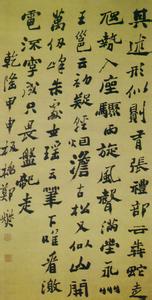 其述形似則有張禮部云奔蛇走
虺勢入座驟雨旋風聲滿堂永州
王邕云初疑輕烟澹古松又似山開
萬仞峰朱處士遥云筆下唯看激
電流字成只畏盤龍走
乾隆甲申板橋鄭燮